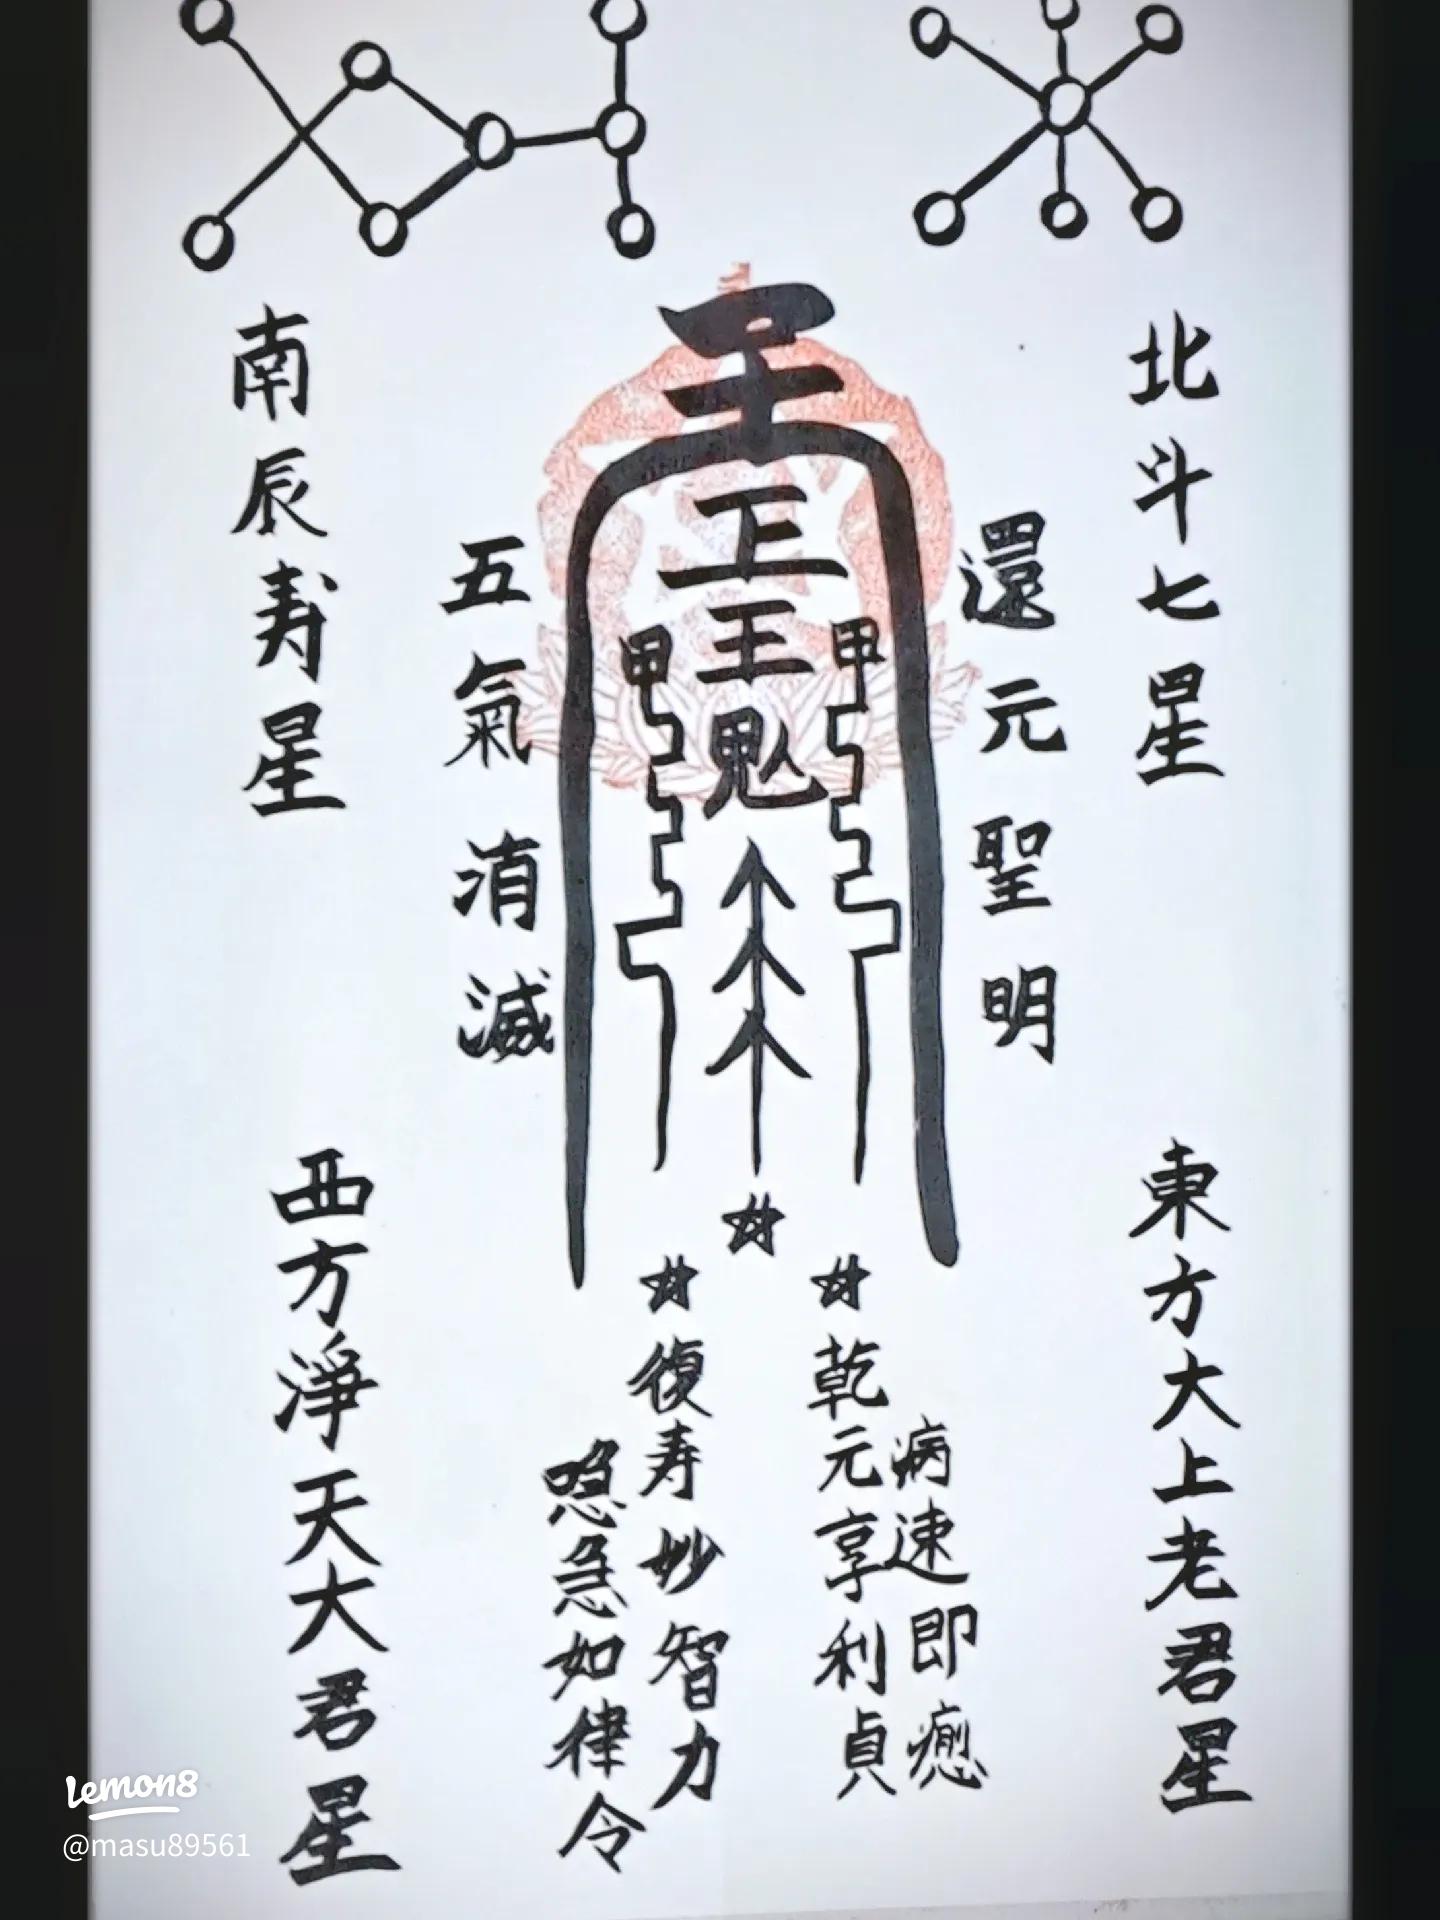 北斗七星
南辰寿星
還元聖明
五氣消滅
東方大上老君星
西方淨天大君星
病速即癒
乾元享利貞
復寿妙智力
急如律令
lemon8
@masu89561